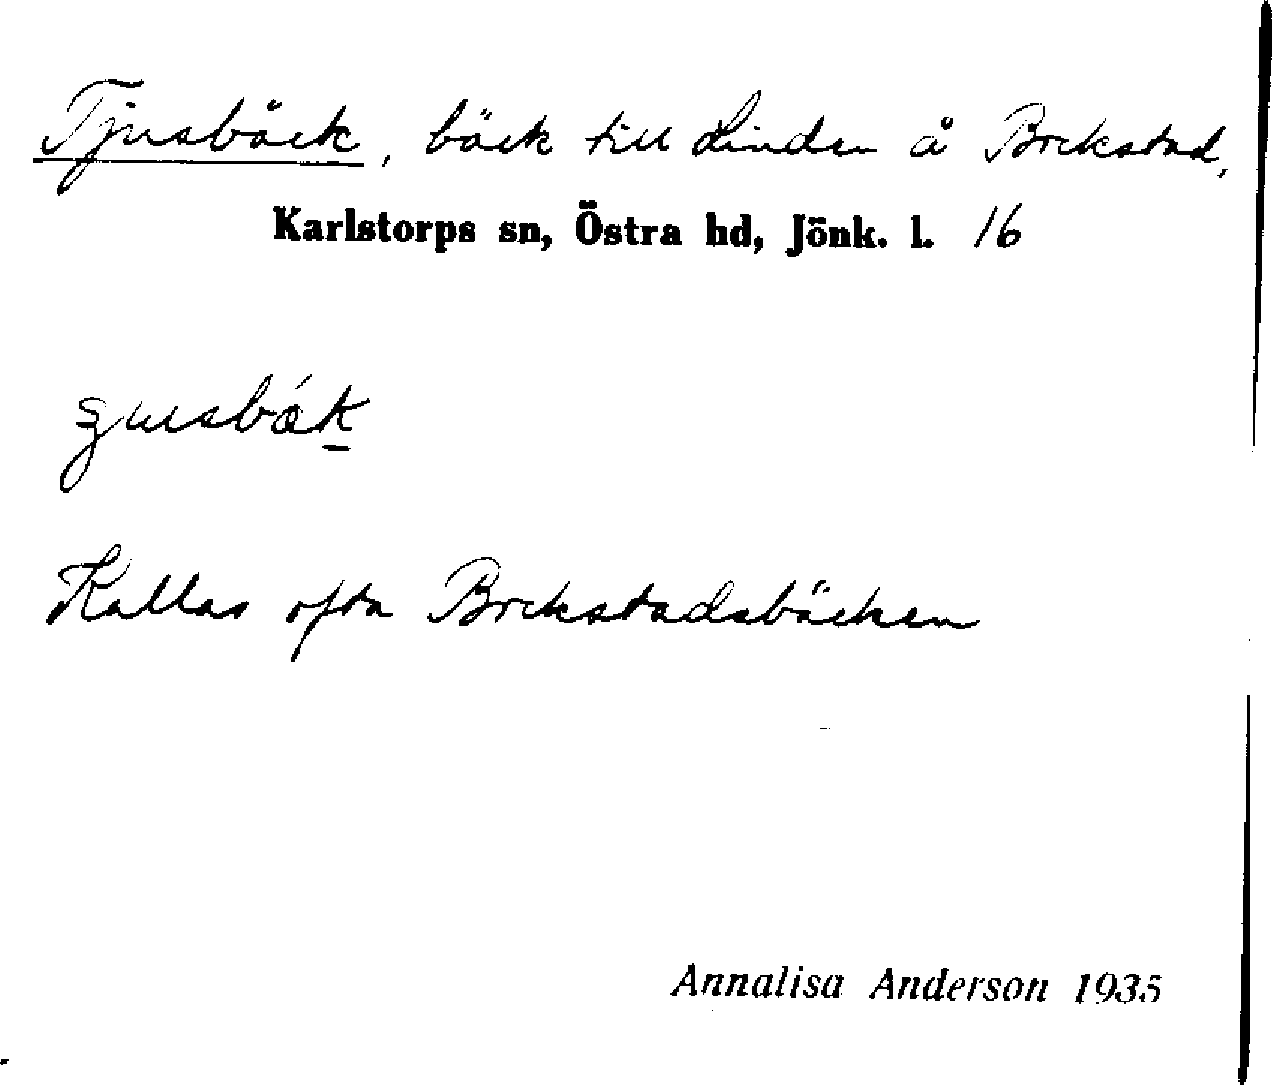 Tjusbäck, bäck till Linden å Brckstad,
Karlstorps sn, Östra hd, Jönk. l. 16
Kallas ofta Brckstadsbäcken
Annalisa Anderson 1935